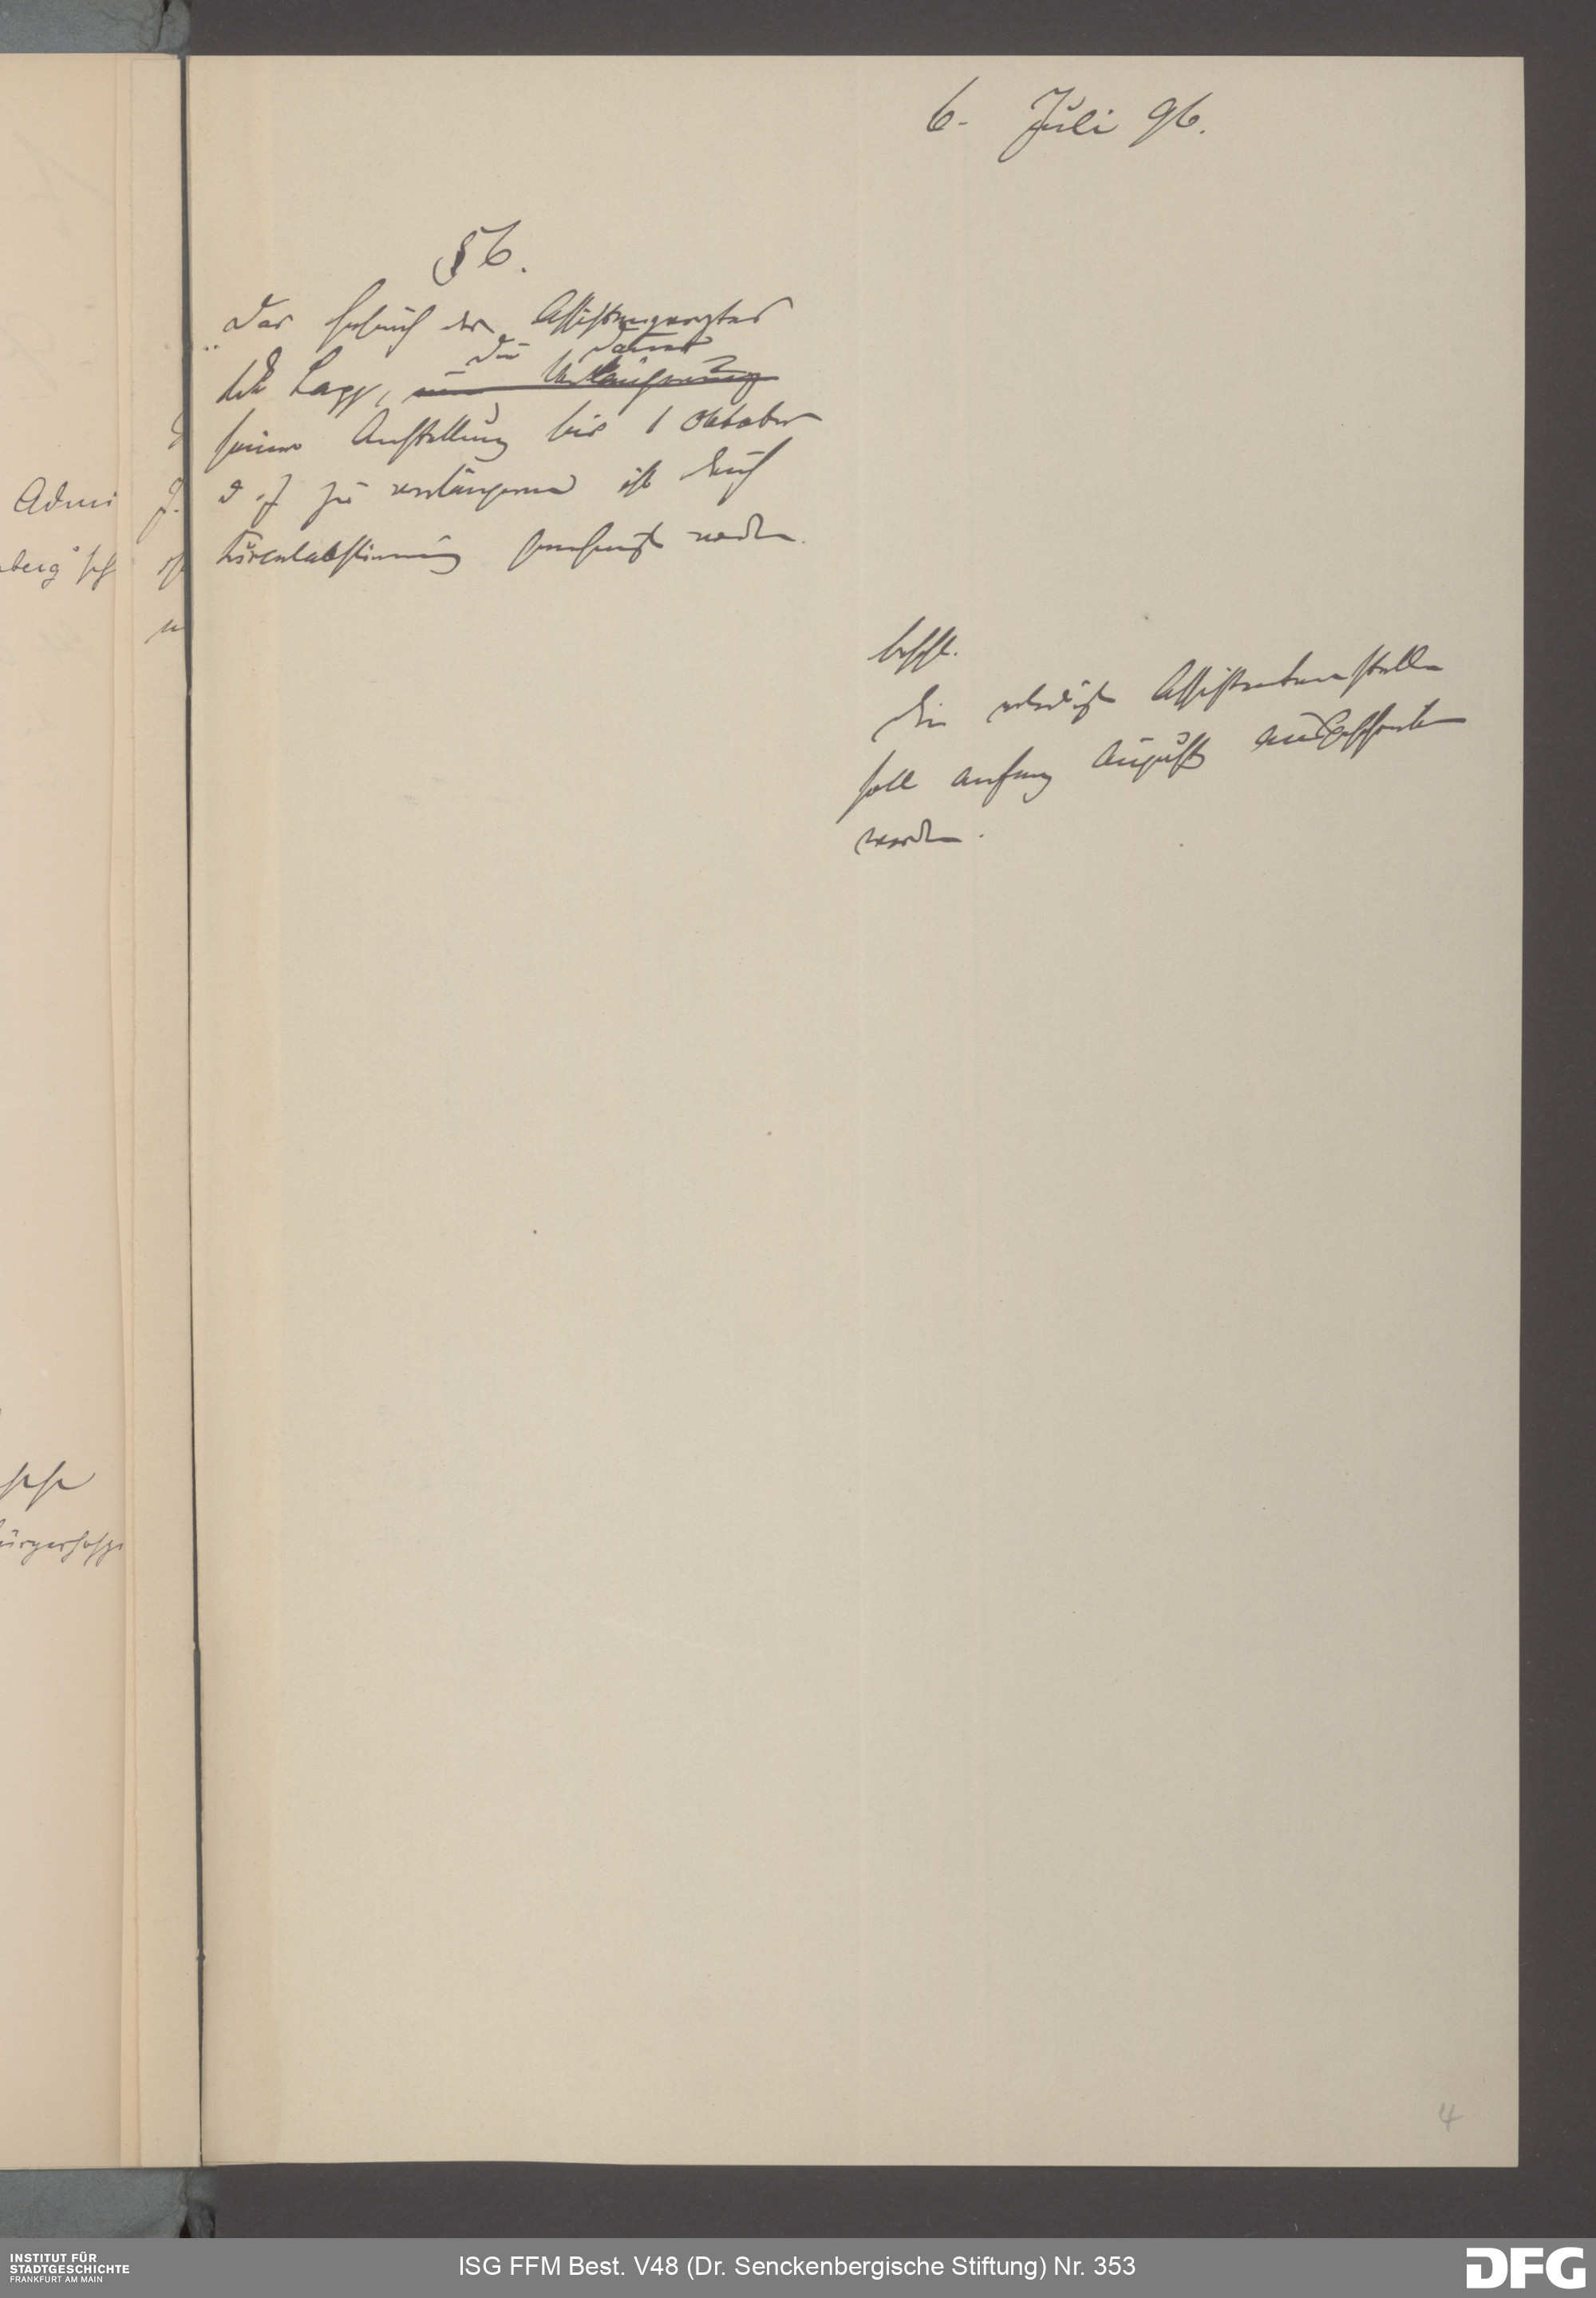 6. Juli 96.
§ 6.
Das Gesuch des Assistenzarztes
die Dauer
Dr Lapp, um Verlängerung
seiner Anstellung bis 1 Oktober
d. J zu verlängern ist durch
Circulabstimmung genehmigt worden.
beschl.
Die erledigte Assistentenstelle
soll Anfang August ausgeschrieben
werden.
Admi
berg'sch
4
INSTITUT FÜR
STADTGESCHICHTE
FRANKFURT AM MAIN
ISG FFM Best. V48 (Dr. Senckenbergische Stiftung) Nr. 353
DFG